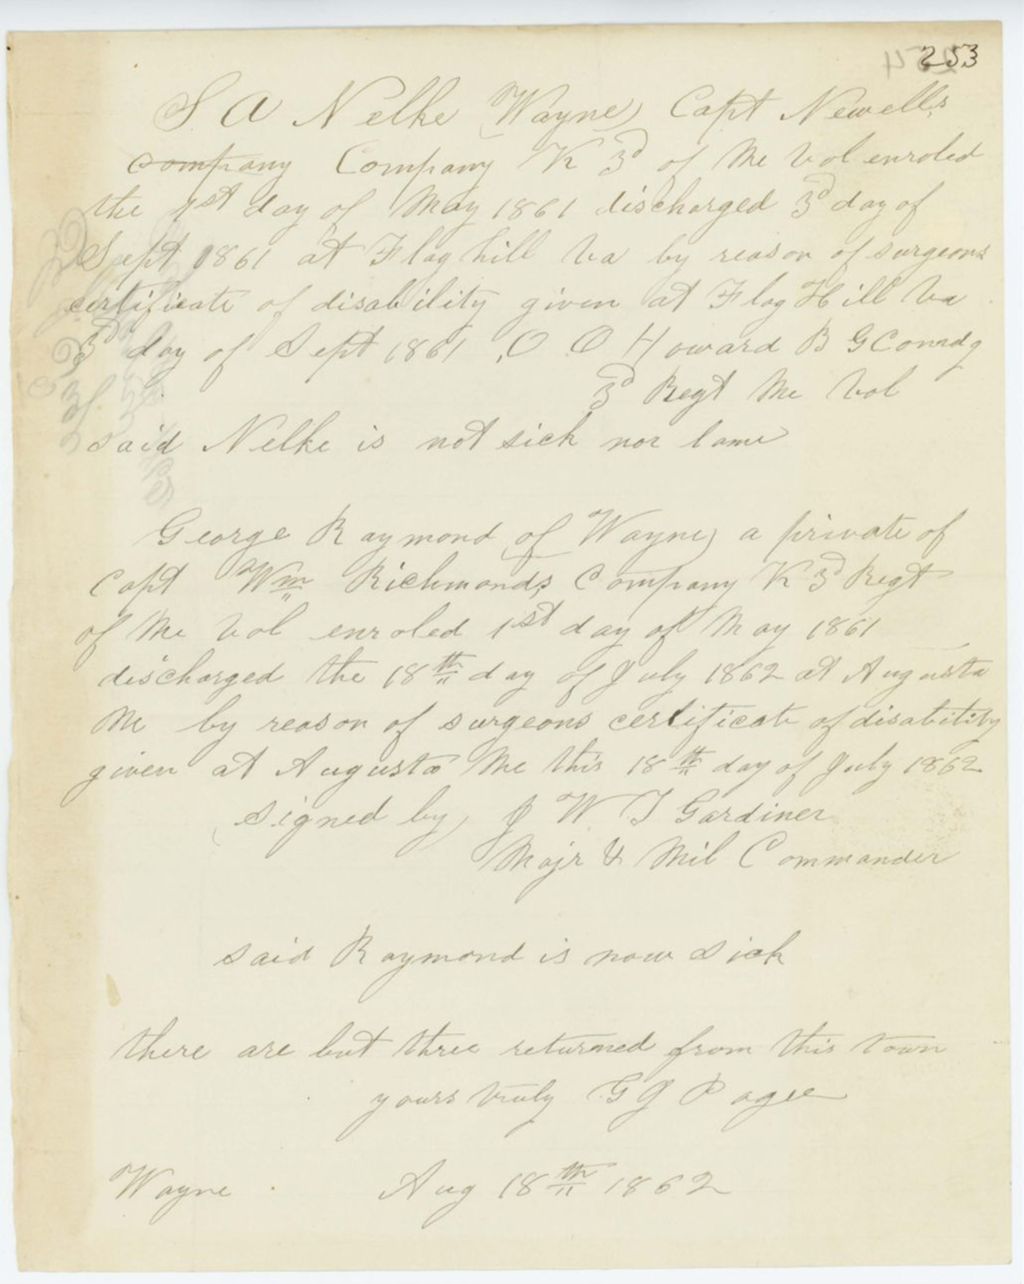 253
S A Nelke (Wayne) Capt Newells
company Company K 3d of Me Vol enroled
the 1st day of May 1861 discharged 3d day of
Sept 1861 at Flag hill Va by reason of surgeons
certificate of disability given at Flag Hill Va
3d day of Sept 1861 O O Howard B G Comdg
3d Regt Me Vol
said Nelke is not sick nor lame
George Raymond (of Wayne) a private of
Capt Wm Richmonds Company K 3d Regt
of Me Vol enroled 1st day of May 1861
discharged the 18th day of July 1862 at Augusta
Me by reason of surgeons certificate of disability
given at Augusta Me this 18th day of July 1862
(signed by) J W T Gardiner
Majr & Mil Commander
said Raymond is now sick
there are but three returned from this town
yours truly G J Page
Wayne Aug 18th 1862